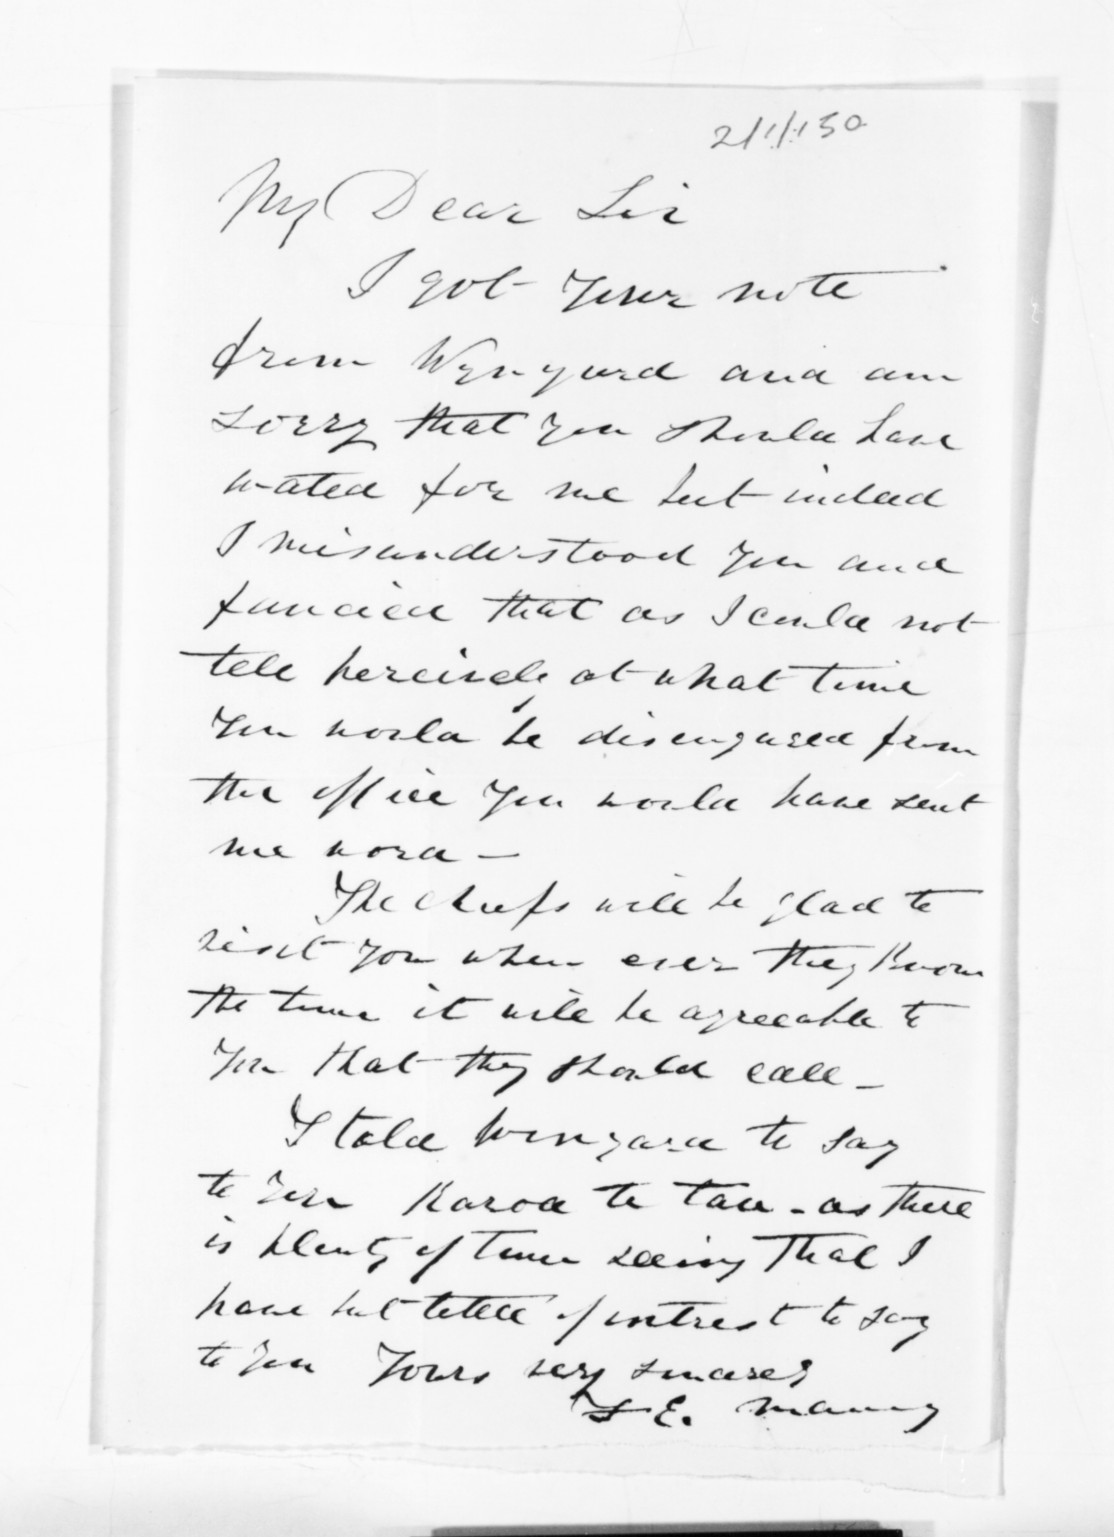 2/1/150
My Dear Sir
I got your note
from Wynyard and am
sorry that you should have
wated for me but indeed
I misunderstood you and
fancied that as I could not
tell percisely at what time
you would be disengaged from
the office you would have sent
me word —
The chiefs will be glad to
visit you when ever they know
the time it will be agreeable to
you that they should call —
I told Winyard to say
to you Karoa te taa - as there
is plenty of time seeing that I
have but little of intrest to say
to you Yours very sincerely
F E. Maning